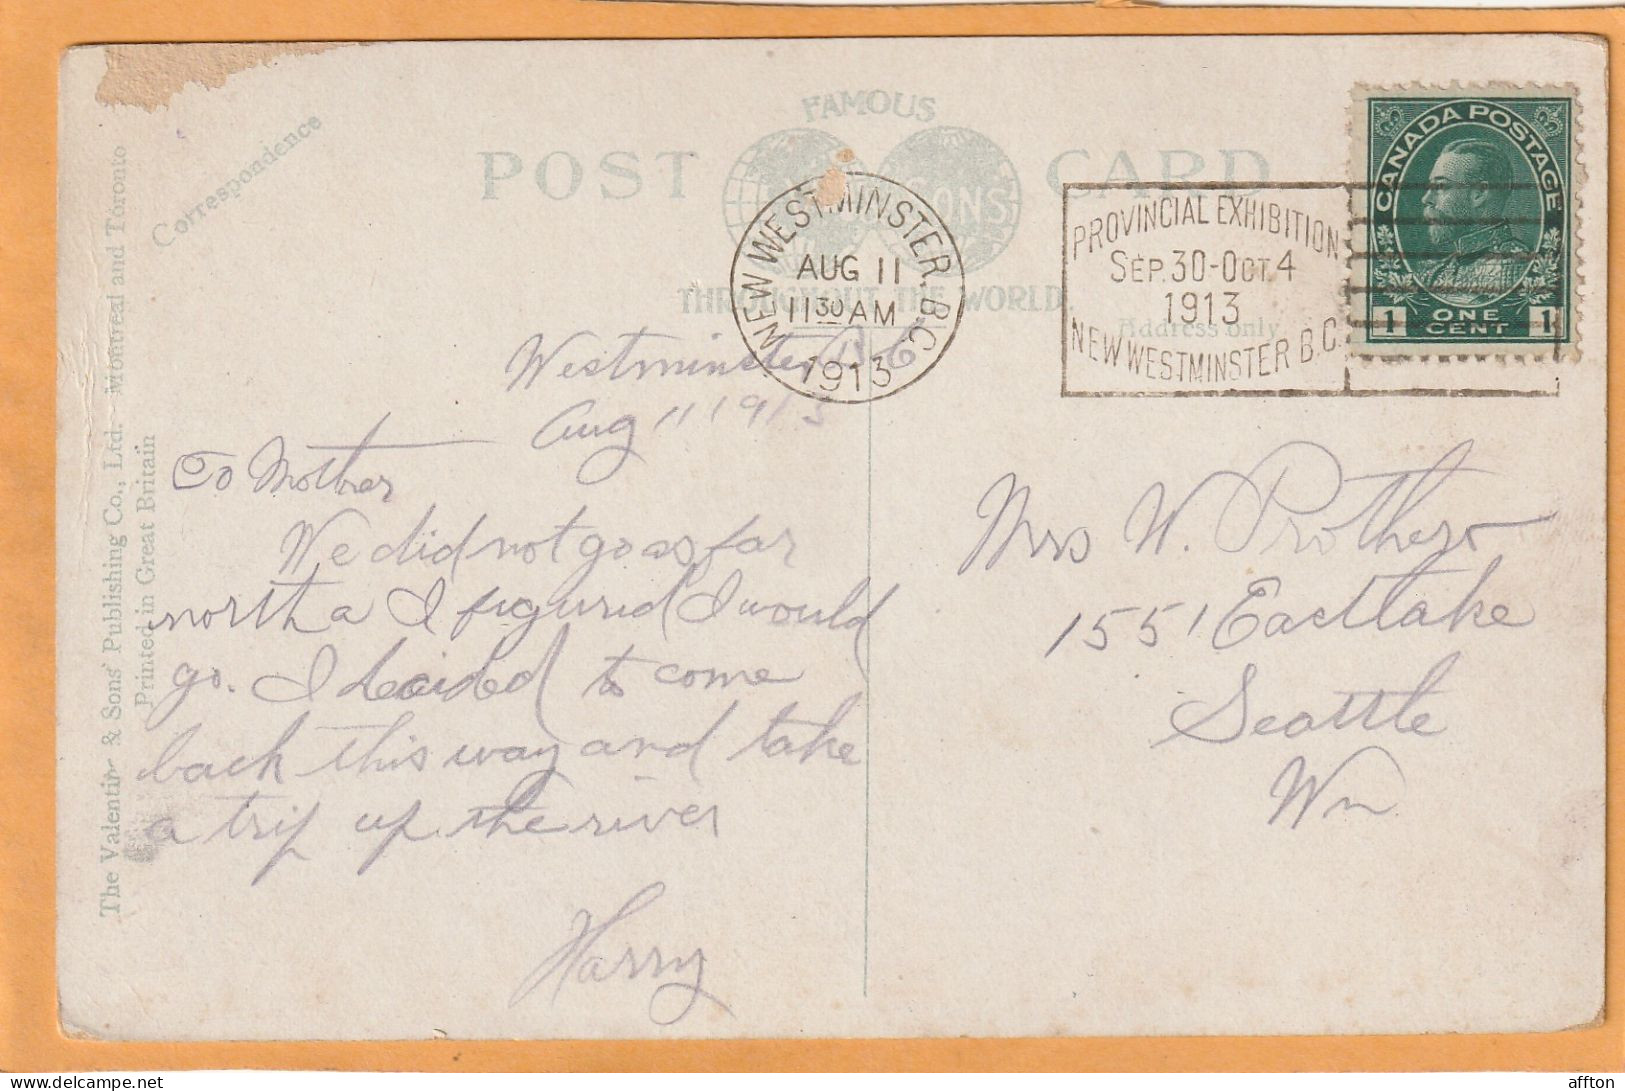 FAMOUS
POST CARD
SONS
THROUGHOUT THE WORLD.
Correspondence
Address only
The Valentine & Sons' Publishing Co., Ltd. - Montreal and Toronto
Printed in Great Britain
NEW WESTMINSTER. B.C.
AUG 11
11 30 AM
1913
PROVINCIAL EXHIBITION
SEP. 30-OCT. 4
1913
NEW WESTMINSTER B.C.
CANADA POSTAGE
1 ONE CENT 1
Westminster B C
Aug 11 1913
To Mother
We did not go as far
north a I figured I would
go. I decided to come
back this way and take
a trip up the river
Harry
Mrs W. Prothero
1551 Eastlake
Seattle
Wn
affton